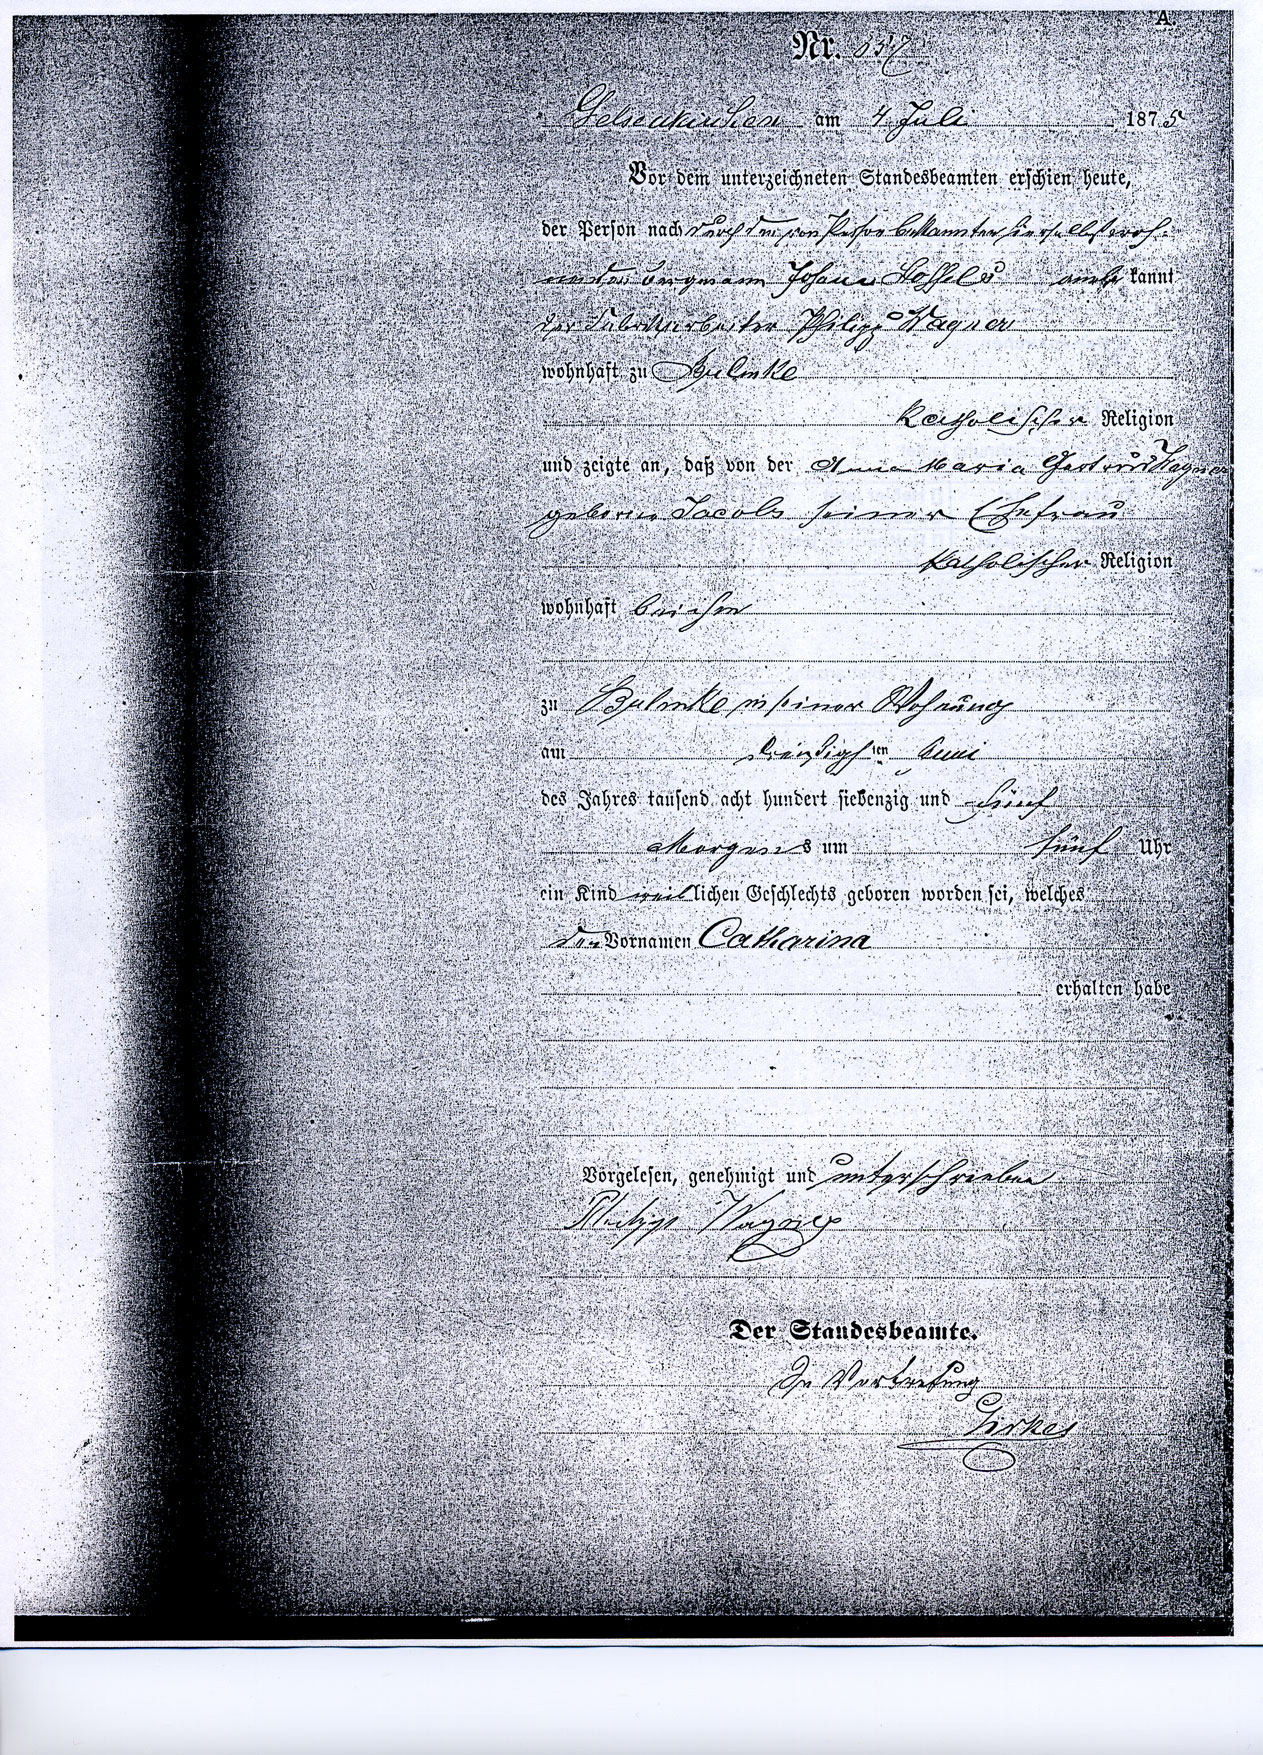 A.
Nr. 657
Gelsenkirchen am 4 Juli 1875
Vor dem unterzeichneten Standesbeamten erschien heute,
der Person nach durch den von Person bekannten hierselbst woh-
nenden Bergmann Johann anerkannt
der Fabrikarbeiter Philipp Wagner
wohnhaft zu Bulmke
katholischer Religion
und zeigte an, daß von der Anna Maria Gertrud Wagner
geborne Jacobs seiner Ehefrau
katholischer Religion
wohnhaft bei ihm
zu Bulmke in seiner Wohnung
am dreißigsten Juni
des Jahres tausend acht hundert siebenzig und fünf
Morgens um fünf Uhr
ein Kind weiblichen Geschlechts geboren worden sei, welches
den Vornamen Catharina
erhalten habe
Vorgelesen, genehmigt und unterschrieben
Philipp Wagner
Der Standesbeamte.
In Vertretung